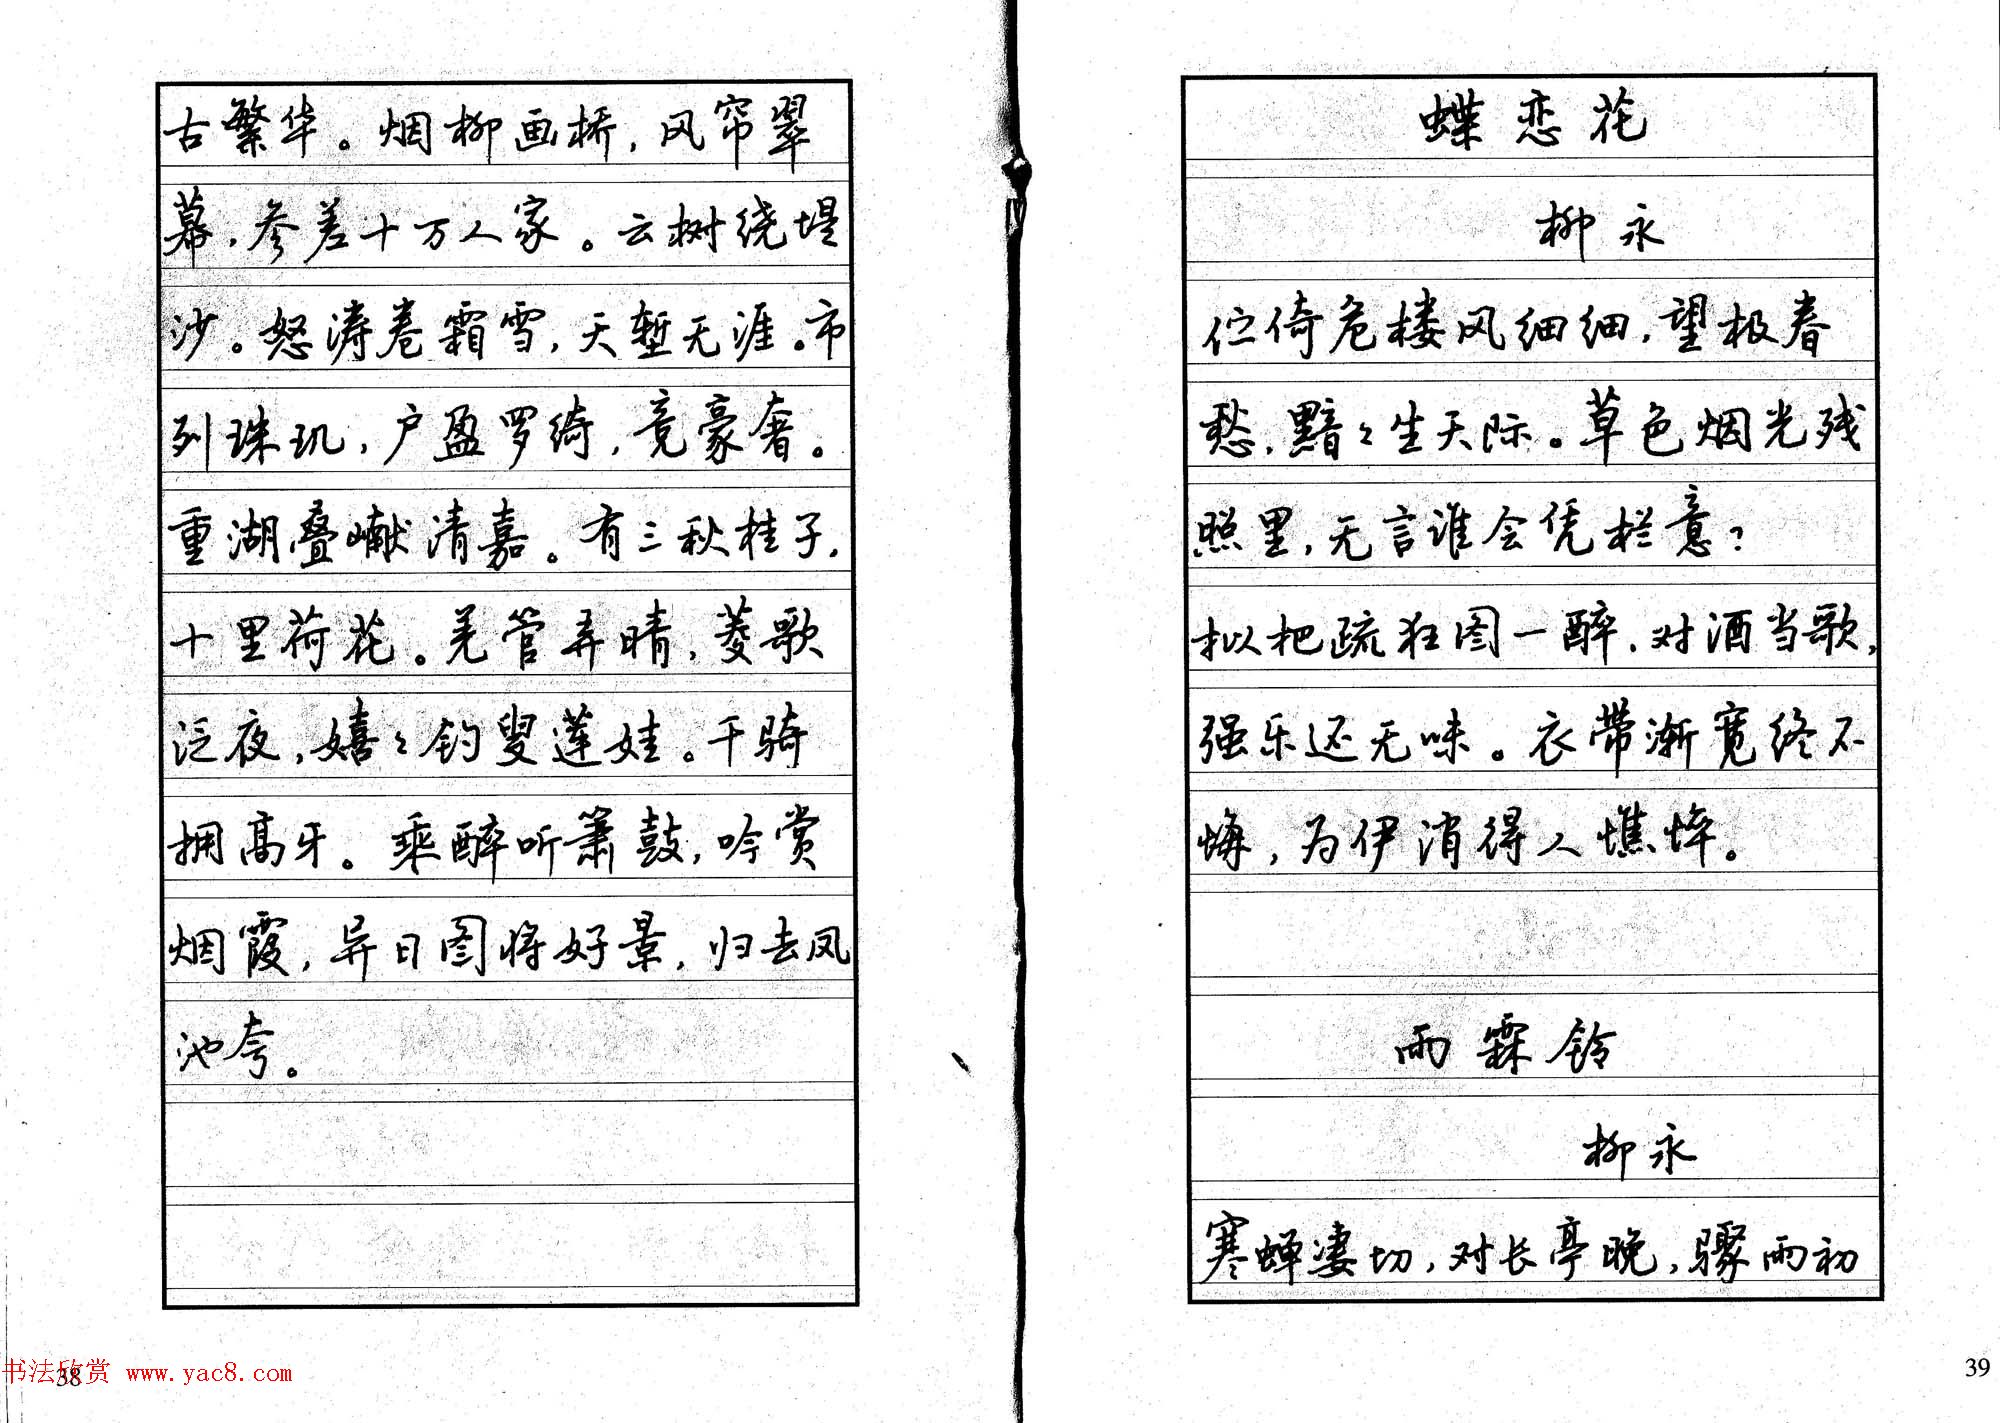 古繁华。烟柳画桥，风帘翠
幕，参差十万人家。云树绕堤
沙。怒涛卷霜雪，天堑无涯。市
列珠玑，户盈罗绮，竞豪奢。
重湖叠巘清嘉。有三秋桂子，
十里荷花。羌管弄晴，菱歌
泛夜，嬉々钓叟莲娃。千骑
拥高牙。乘醉听箫鼓，吟赏
烟霞，异日图将好景，归去凤
池夸。
书法欣赏 www.yac8.com
38
蝶恋花
柳永
伫倚危楼风细细，望极春
愁，黯々生天际。草色烟光残
照里，无言谁会凭栏意？
拟把疏狂图一醉，对酒当歌，
强乐还无味。衣带渐宽终不
悔，为伊消得人憔悴。
雨霖铃
柳永
寒蝉凄切，对长亭晚，骤雨初
39